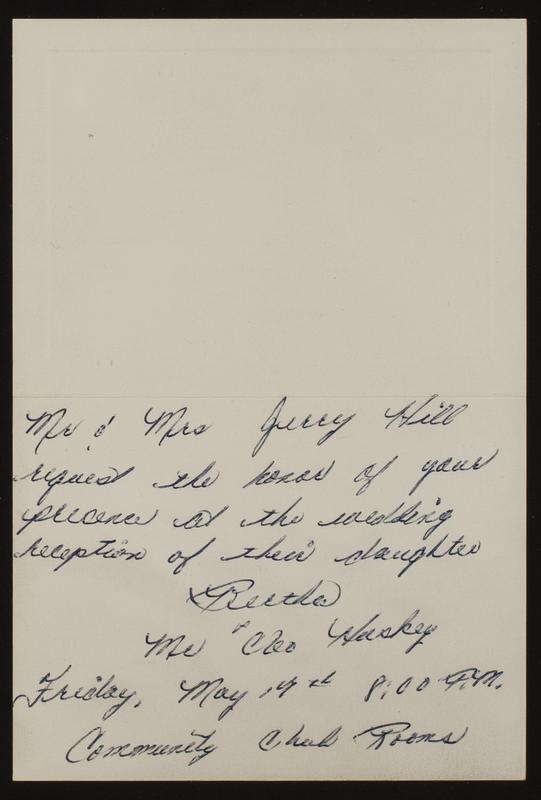 Mr & Mrs Jerry Hill
request the honor of your
presence at the wedding
reception of their daughter
Bertha
Mr Cleo Haskey
Friday, May 8:00 P.M.
Community Club Rooms